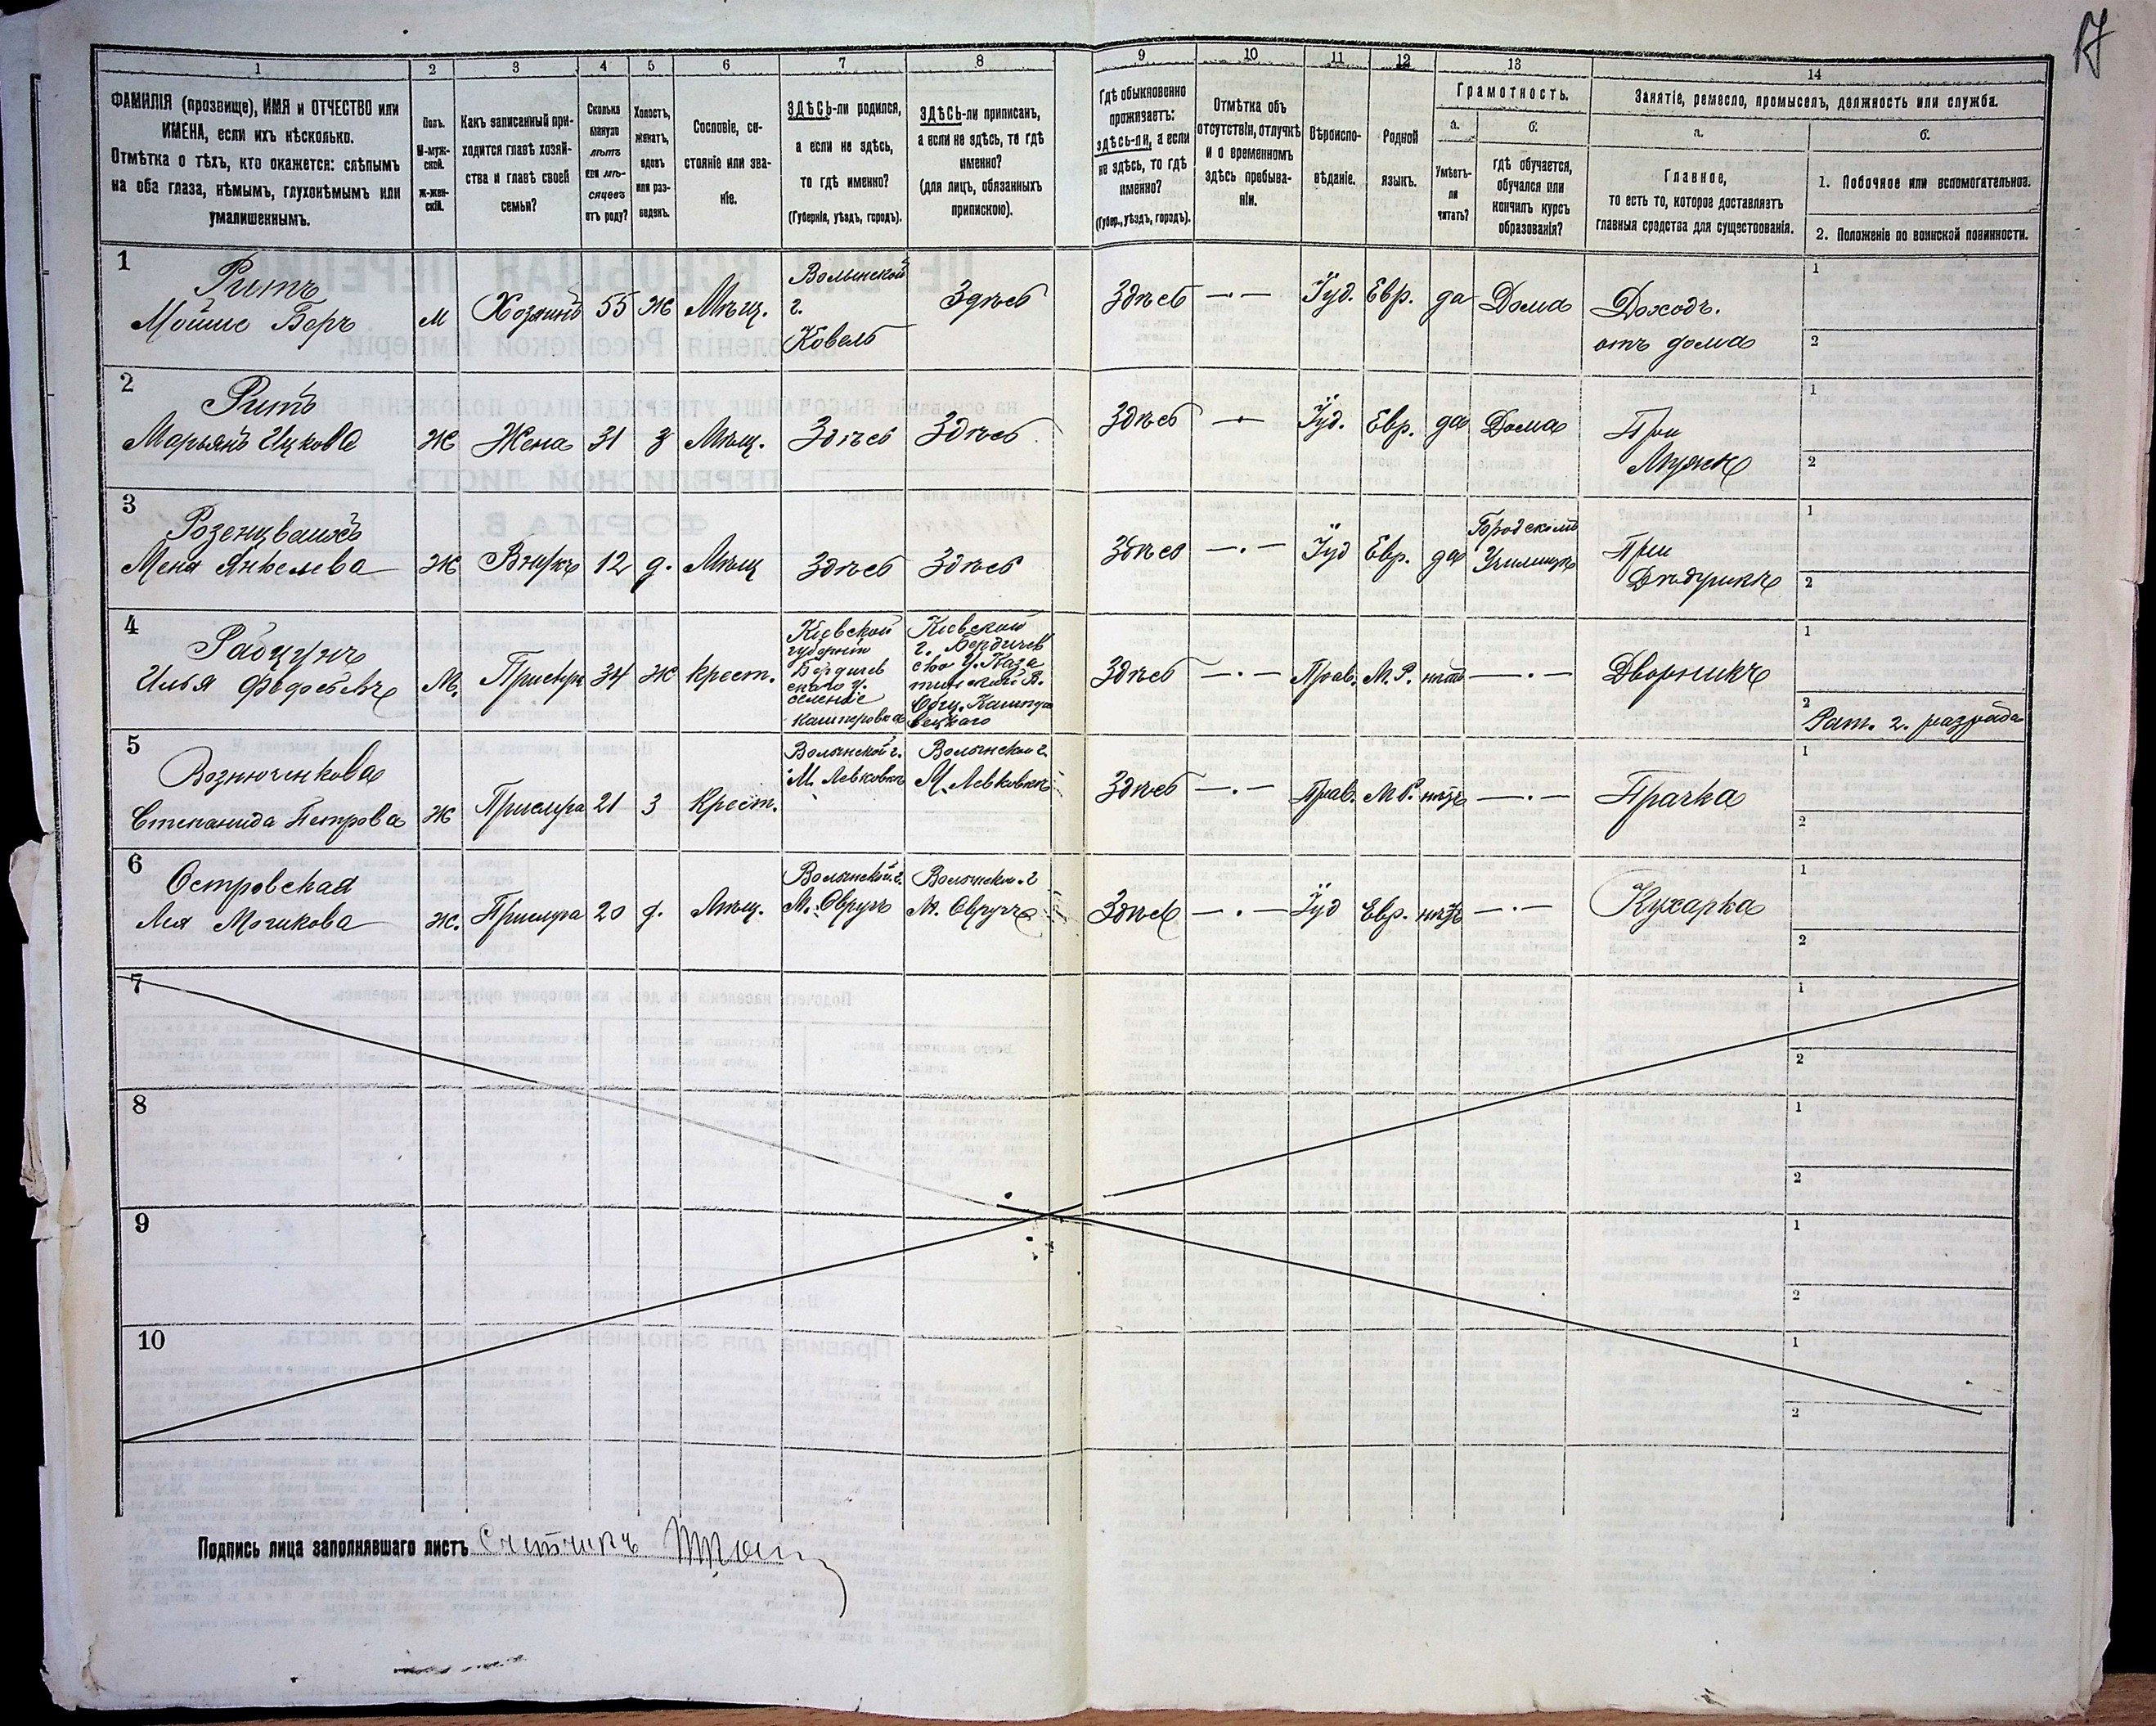 17
1 2 3 4 5 6 7 8 9 10 11 12 13 14
ФАМИЛІЯ (прозвище), ИМЯ и ОТЧЕСТВО или
ИМЕНА, если ихъ нѣсколько.
Отмѣтка о тѣхъ, кто окажется: слѣпымъ
на оба глаза, нѣмымъ, глухонѣмымъ или
умалишеннымъ.
Полъ.
М-муж-
ской.
Ж-жен-
скій.
Какъ записанный при-
ходится главѣ хозяй-
ства и главѣ своей
семьи?
Сколько
минуло
лѣтъ
или мѣ-
сяцевъ
отъ роду?
Холостъ,
женатъ,
вдовъ
или раз-
веденъ.
Сословіе, со-
стояніе или зва-
ніе.
ЗДѢСЬ-ли родился,
а если не здѣсь,
то гдѣ именно?
(Губернія, уѣздъ, городъ).
ЗДѢСЬ-ли приписан,
а если не здѣсь, то гдѣ
именно?
(для лицъ, обязанныхъ
припискою).
Гдѣ обыкновенно
проживаетъ:
здѣсь-ли, а если
не здѣсь, то гдѣ
именно?
(Губер., уѣздъ, городъ).
Отмѣтка объ
отсутствіи, отлучкѣ
и о временномъ
здѣсь пребыва-
ніи.
Вѣроиспо-
вѣданіе.
Родной
языкъ.
Грамотность.
а.
Умѣетъ-
ли
читать?
б.
гдѣ обучается,
обучался или
кончилъ курсъ
образованія?
Занятіе, ремесло, промыселъ, должность или служба.
а.
Главное,
то есть то, которое доставляетъ
главныя средства для существованія.
б.
1. Побочное или вспомогательное.
2. Положеніе по воинской повинности.
1
Ритъ
Мойше Беръ
м
Хозяинъ
55
ж
Мѣщ.
Волынской
г.
Ковель
Здѣсь
Здѣсь
— · —
Іуд.
Евр.
да
Дома
Доходъ.
отъ дома
1
2
2
Ритъ
Марьянъ Ицкова
ж
Жена
31
з
Мѣщ.
Здѣсь
Здѣсь
Здѣсь
— · —
Іуд.
Евр.
да
Дома
При
Мужѣ
1
2
3
Розенцвайгъ
Меня Янкелева
ж
Внучка
12
д.
Мѣщ
Здѣсь
Здѣсь
Здѣсь
— · —
Іуд
Евр.
да
Городскомъ
Училищѣ
При
Дѣдушкѣ
1
2
4
Илья Федосѣевъ
М.
Прислуга
34
ж
Крест.
Кіевской
губерніи
Бердичев
скаго у.
селеніе
Кашперовка
Кіевской
г. Бердичев
ско у. Каза
тинской В.
Общ. Кашпуро
вецкаго
Здѣсь
— · —
Прав.
М. Р.
нѣтъ
— · —
Дворникъ
1
2
Рат. 2. разряда
5
Вознюченкова
Степанида Петрова
ж
Прислуга
21
З
Крест.
Волынской г.
М. Левковка
Волынской г.
М. Левковка
Здѣсь
— · —
Прав.
М Р.
нѣтъ
— · —
Прачка
1
2
6
Островская
Лея Мошкова
ж.
Прислуга
20
д.
Мѣщ.
Волынской г.
М. Овручъ
Волынской г
М. Овручъ
Здѣсь
— · —
Іуд
Евр.
нѣтъ
— · —
Кухарка
1
2
7
1
2
8
1
2
9
1
2
10
1
2
Подпись лица заполнявшаго листъ Счетчикъ